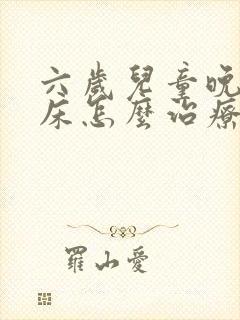 六歲兒童晚
床怎麼治療
羅山愛